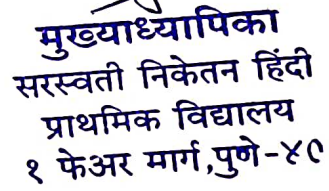 मुख्याध्यापिका
सरस्वती निकेतन हिंदी
प्राथमिक विद्यालय
१ फेअर मार्ग,पुणे-४९